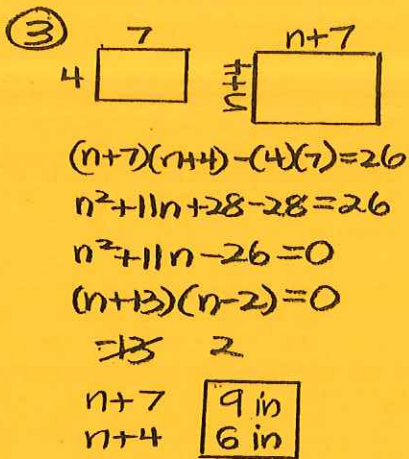 ③
7
n+7
4
n+4
(n+7)(n+4)-(4)(7)=26
n²+11n+28-28=26
n²+11n-26=0
(n+13)(n-2)=0
-13 2
n+7 9 in
n+4 6 in